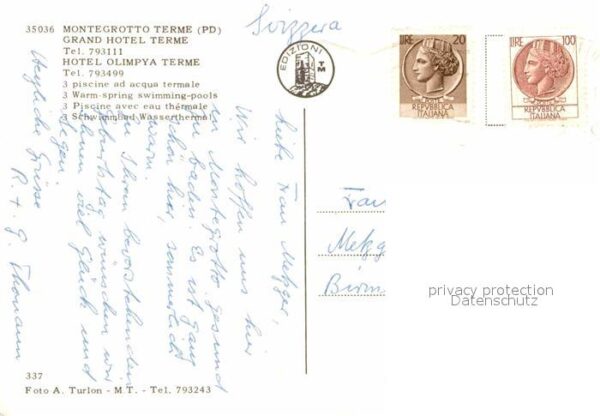 35036 MONTEGROTTO TERME (PD)
GRAND HOTEL TERME
Tel. 793111
HOTEL OLIMPYA TERME
Tel. 793499
3 piscine ad acqua termale
3 Warm-spring swimming-pools
3 Piscine avec eau thérmale
3 Schwimmbad Wasserthermal
Svizzera
EDIZIONI
TM
LIRE 20
REPVBBLICA
ITALIANA
LIRE 100
REPVBBLICA
ITALIANA
Liebe Frau Metzger,
Wir hoffen uns hier
in Montegrotto gesund
zu baden. Es ist ganz
schön hier, sommerlich
warm.
Zu Ihrem bevorstehenden
Geburtstag wünschen wir
Ihnen viel Glück und
Segen.
Herzliche Grüsse
R. + G. Thomann
Frau
Metzg
Birm
privacy protection
Datenschutz
337
Foto A. Turlon - M.T. - Tel. 793243